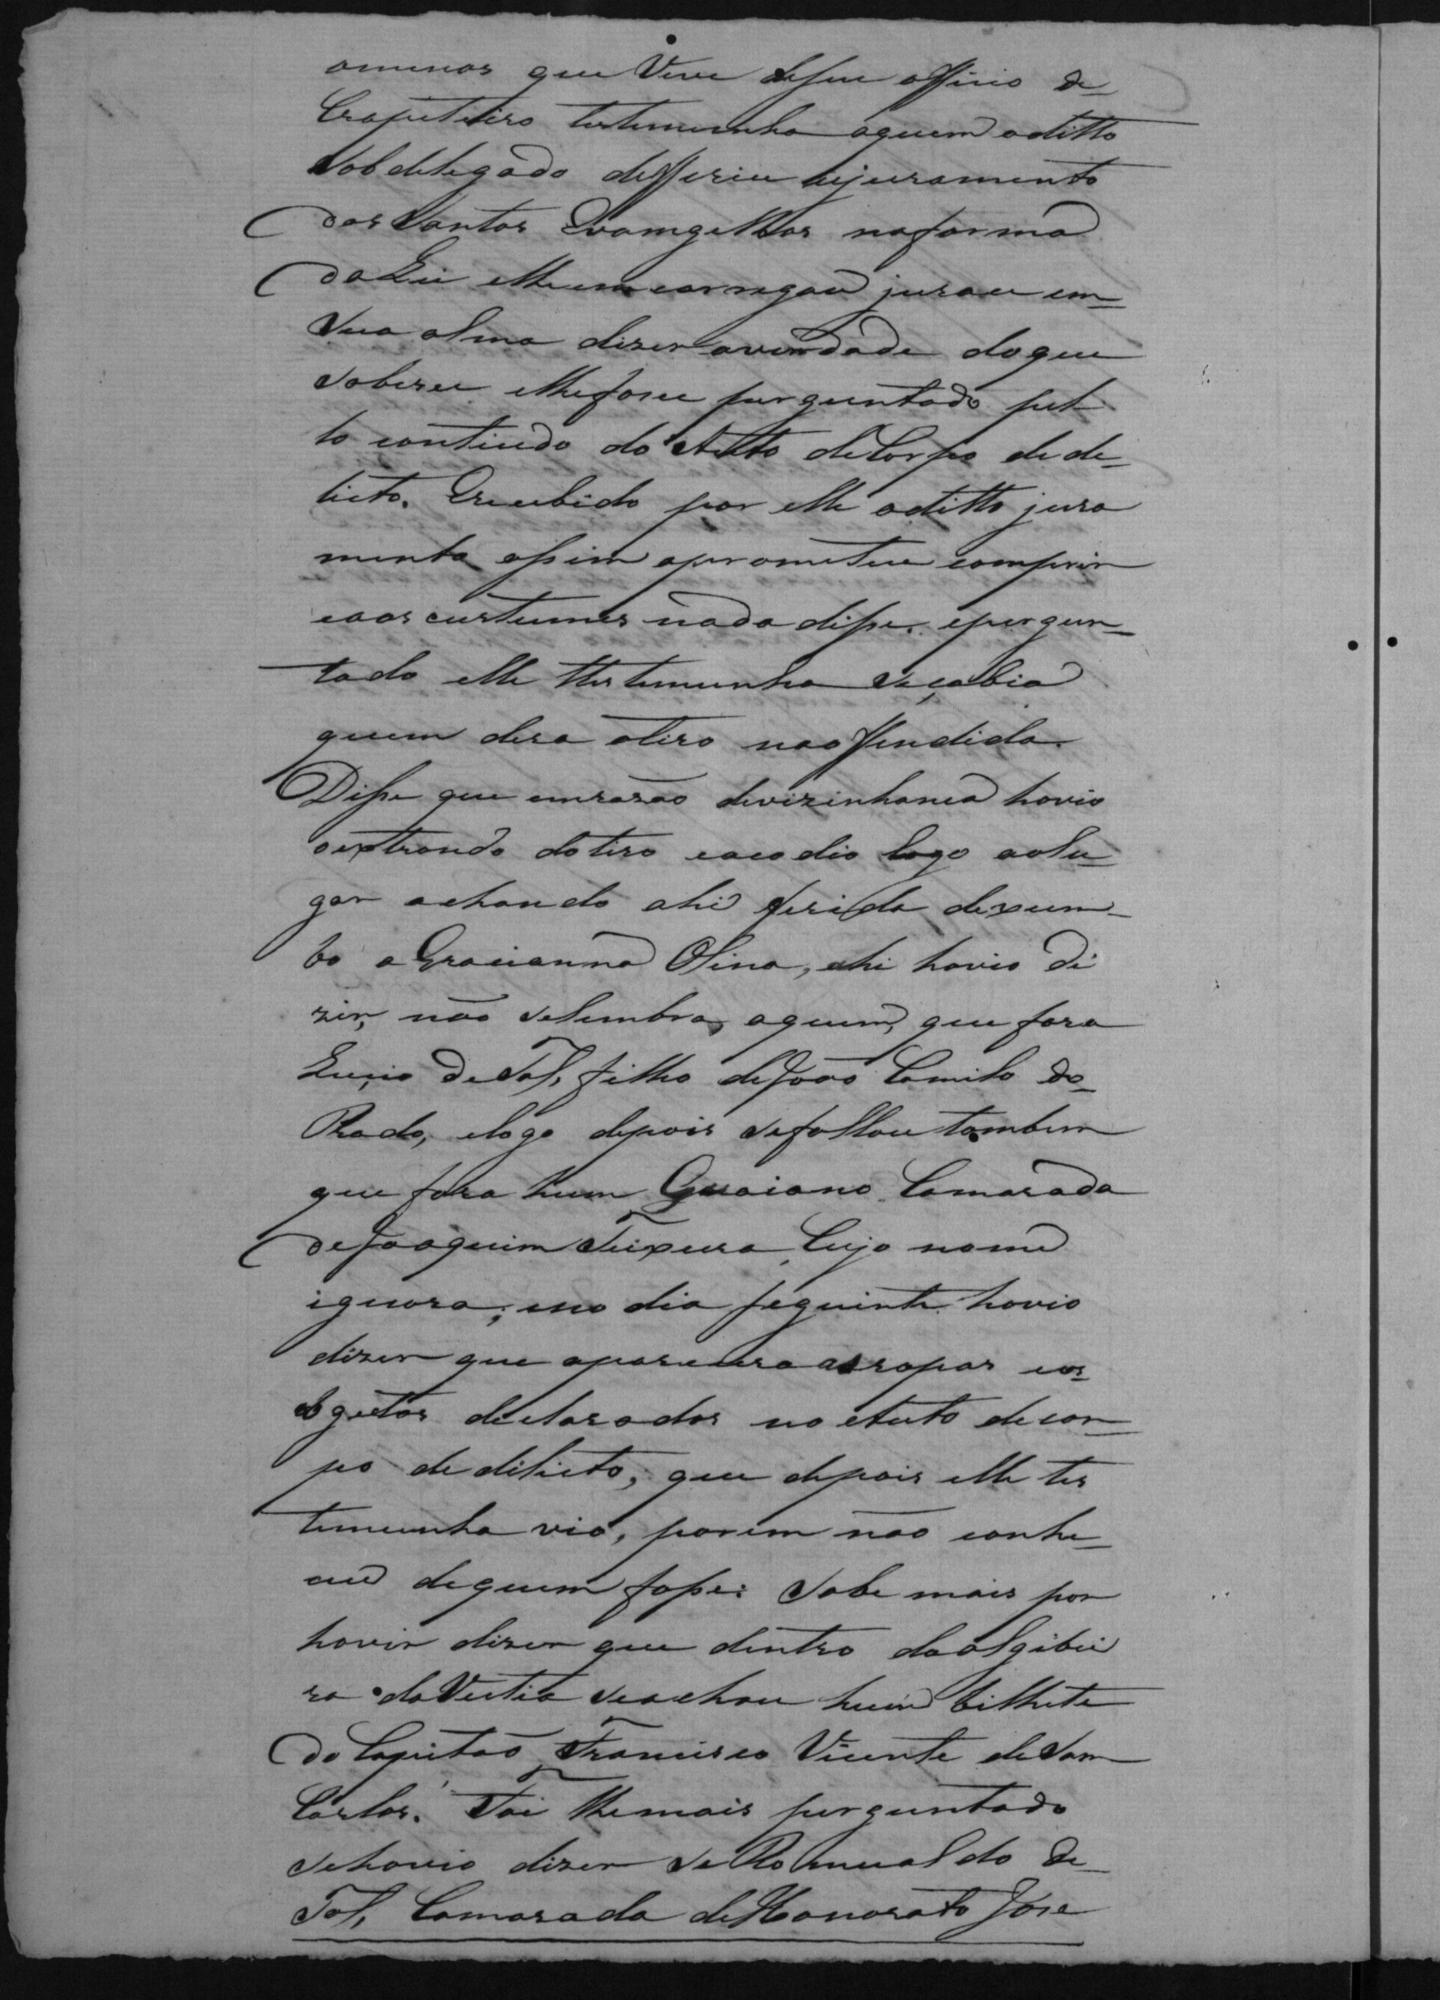 amenos que Vive deseu officio de
Crapeteiro testemunha aquem oditto
Sobdelegado defferiu hejuramento
dos Santos Evamgelhos naforma
da Lei elheemcarregou jurace em
Sua alma dizer averdade doque
Soberce elhefoce perguntado pel
lo contiudo do Auto de Corpo de de-
licto. Erecebido por elle oditto jura
mento assim oprometeu comprir
eaos custumes nada disse. epergun-
tado elle thestemunha se çabia
quem dera otiro naoffendida.
Disse que emrazão devizinhança hovio
oextrondo dotiro eacodio logo aolu-
gar achando ahi ferida dexum-
bo a Gracianna Olina, ahi hovio di
zer, não selembra, aquem, que fora
Lucio de Tal, filho de João Camilo do
Prado, elogo depois sefallou tambem
que fora hum Goaiano Camarada
de Joaquim Teixeira, Cujo nome
ignora; eno dia seguinte hovio
dizer que aparecera as ropas eos
ogetos declarados no Auto decor-
po dedelicto, que depois elle tes
temunha vio, porem não conhe-
ceu dequem fosse: Sabe mais por
hovir dizer que dentro daalgibei
ra da Vestia seachou hum bilhete
do Capitão Francisco Vicente de Sam
Carlos. Foi lhemais perguntado
sehovio dizer se Romualdo de
Tal, Camarada de Honorato Jose